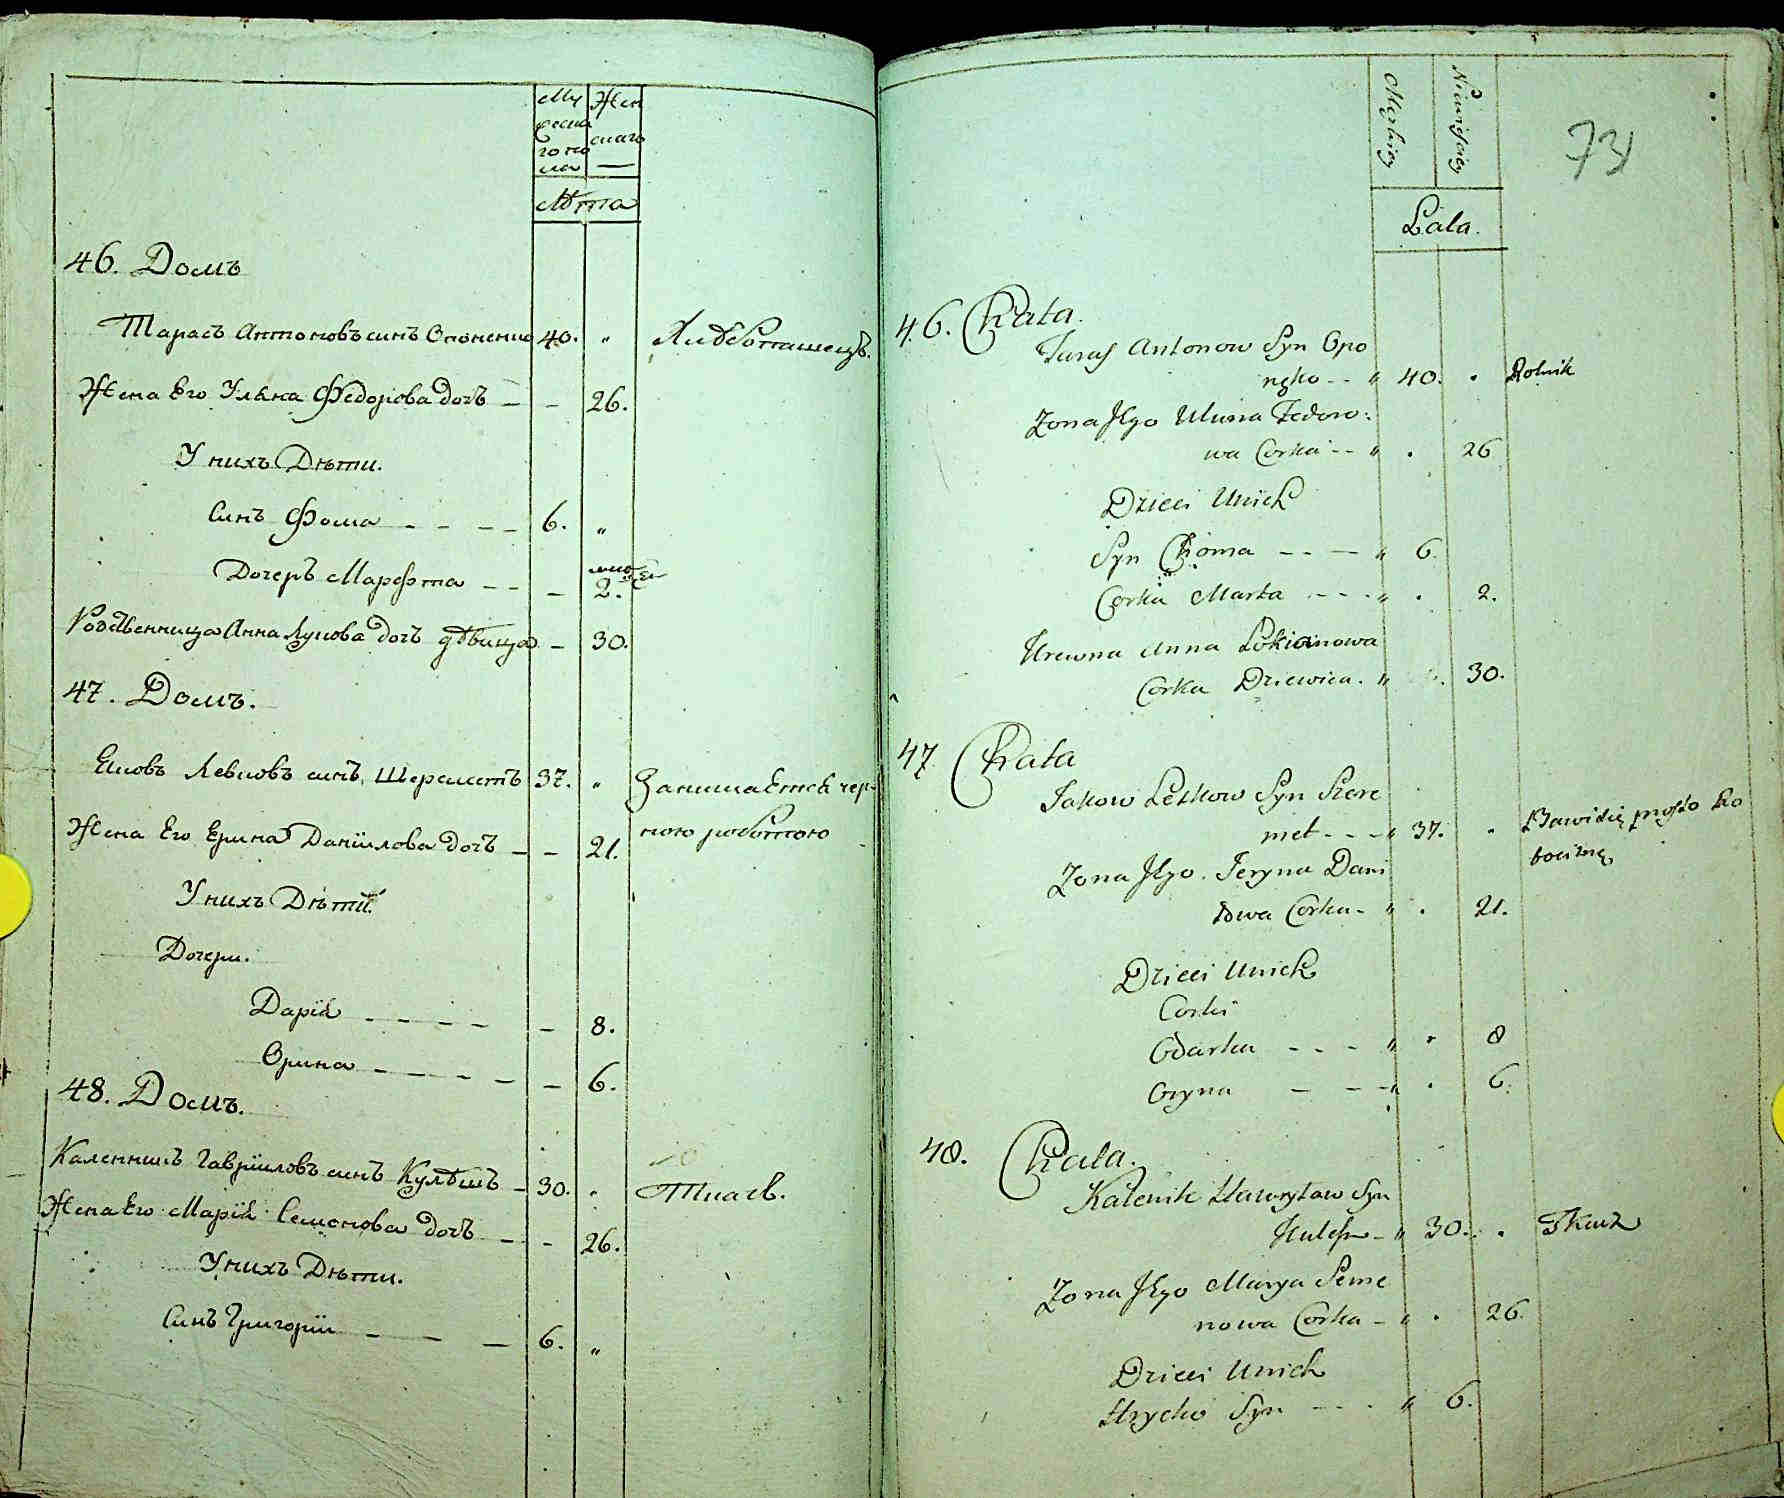 Му Жен
ска скаго
го по
ла
Лѣта
46. Домъ
Тарасъ Антоновъ синъ Опоненко 40. „ Хлѣбопашецъ.
Жена Его Уляна Федорова дочъ — — 26.
У нихъ Дѣти.
Синъ Фома — — — — 6. „
Дочеръ Марфта — — — 2.
Родственница Анна Лукова дочъ дѣвица — 30.
47. Домъ.
Яковъ Левковъ синъ Шереметъ 37. „ Занимается чер-
ною роботою
Жена Его Ерина Данїилова дочъ — — 21.
У нихъ Дѣти.
Дочери.
Дарїя — — — — — 8.
Орина — — — — — — 6.
48. Домъ.
Каленикъ Гаврїиловъ синъ Кулѣшъ — 30. „ Ткачъ.
Жена Его Марїя Семенова дочъ — — 26.
У нихъ Дѣти.
Синъ Григорїи — — — 6. „
73
Męskiey Niewiesciey
Lata.
46. Chata.
Taras Antonow Syn Opo
nęko - - „ 40. „ Rolnik
Zona Jego Uluna Fedoro:
wa Corka - - „ . 26
Dzieci Unich
Syn Choma - - — „ 6.
Corka Marta - - - „ . 2.
Krewna Anna Lokianowa
Corka Dziewica. „ . 30.
47 Chata
Jakow Lewkow Syn Szere
met - - - „ 37. „ Bawi się prosto Ro
bocizną
Zona Jego Jeryna Dani
łowa Corka - „ . 21.
Dzieci Unich
Corki
Odarka - - - „ „ 8
Oryna - - - „ . 6.
48. Chata.
Kalenik Hawryłow Syn
Kulesz - „ 30. . Tkacz
Zona Jego Marya Seme
nowa Corka - „ . 26.
Dzieci Unich
Hryćko Syn - - - „ 6.